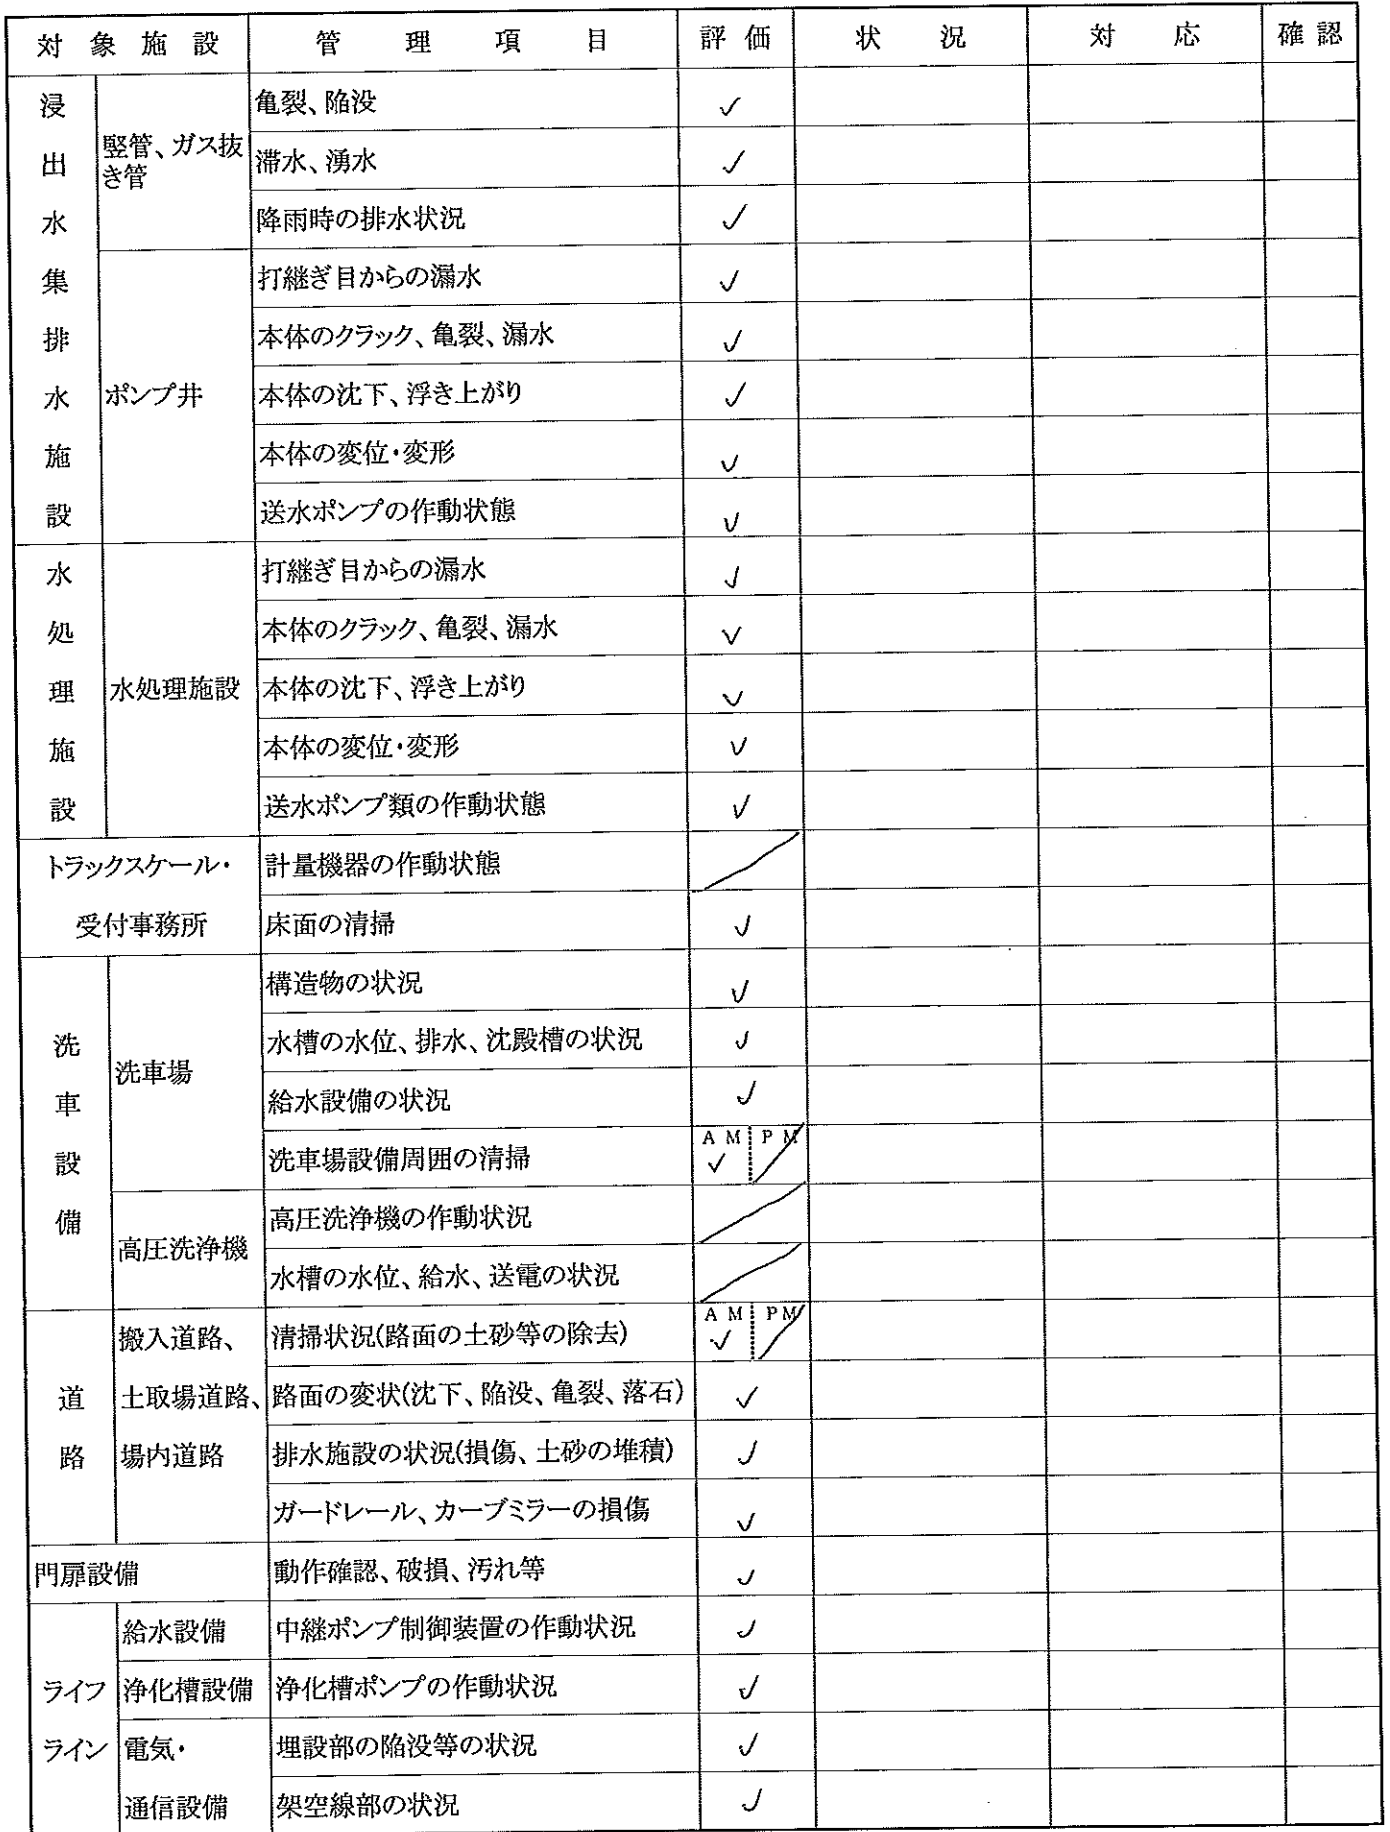 対象施設 管理項目 評価 状況 対応 確認
浸出水集排水施設
竪管、ガス抜き管
亀裂、陥没 ✓
滞水、湧水 ✓
降雨時の排水状況 ✓
ポンプ井
打継ぎ目からの漏水 ✓
本体のクラック、亀裂、漏水 ✓
本体の沈下、浮き上がり ✓
本体の変位・変形 ✓
送水ポンプの作動状態 ✓
水処理施設
水処理施設
打継ぎ目からの漏水 ✓
本体のクラック、亀裂、漏水 ✓
本体の沈下、浮き上がり ✓
本体の変位・変形 ✓
送水ポンプ類の作動状態 ✓
トラックスケール・
受付事務所
計量機器の作動状態 ／
床面の清掃 ✓
洗車設備
洗車場
構造物の状況 ✓
水槽の水位、排水、沈殿槽の状況 ✓
給水設備の状況 ✓
洗車場設備周囲の清掃 AM ✓ PM ／
高圧洗浄機
高圧洗浄機の作動状況 ／
水槽の水位、給水、送電の状況 ／
道路
搬入道路、
土取場道路、
場内道路
清掃状況(路面の土砂等の除去) AM ✓ PM ／
路面の変状(沈下、陥没、亀裂、落石) ✓
排水施設の状況(損傷、土砂の堆積) ✓
ガードレール、カーブミラーの損傷 ✓
門扉設備 動作確認、破損、汚れ等 ✓
ライフ
ライン
給水設備 中継ポンプ制御装置の作動状況 ✓
浄化槽設備 浄化槽ポンプの作動状況 ✓
電気・
通信設備
埋設部の陥没等の状況 ✓
架空線部の状況 ✓